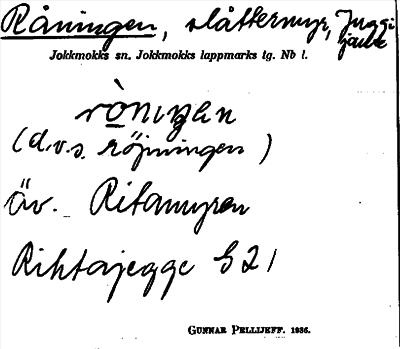 Råningen, slåttermyr,
Jokkmokks sn. Jokkmokks lappmarks tg. Nb l.
ròniŋən
(d.v.s. röjningen)
äv. Ritamyren
Rihtajegge
GUNNAR PELLIJEFF. 1936.